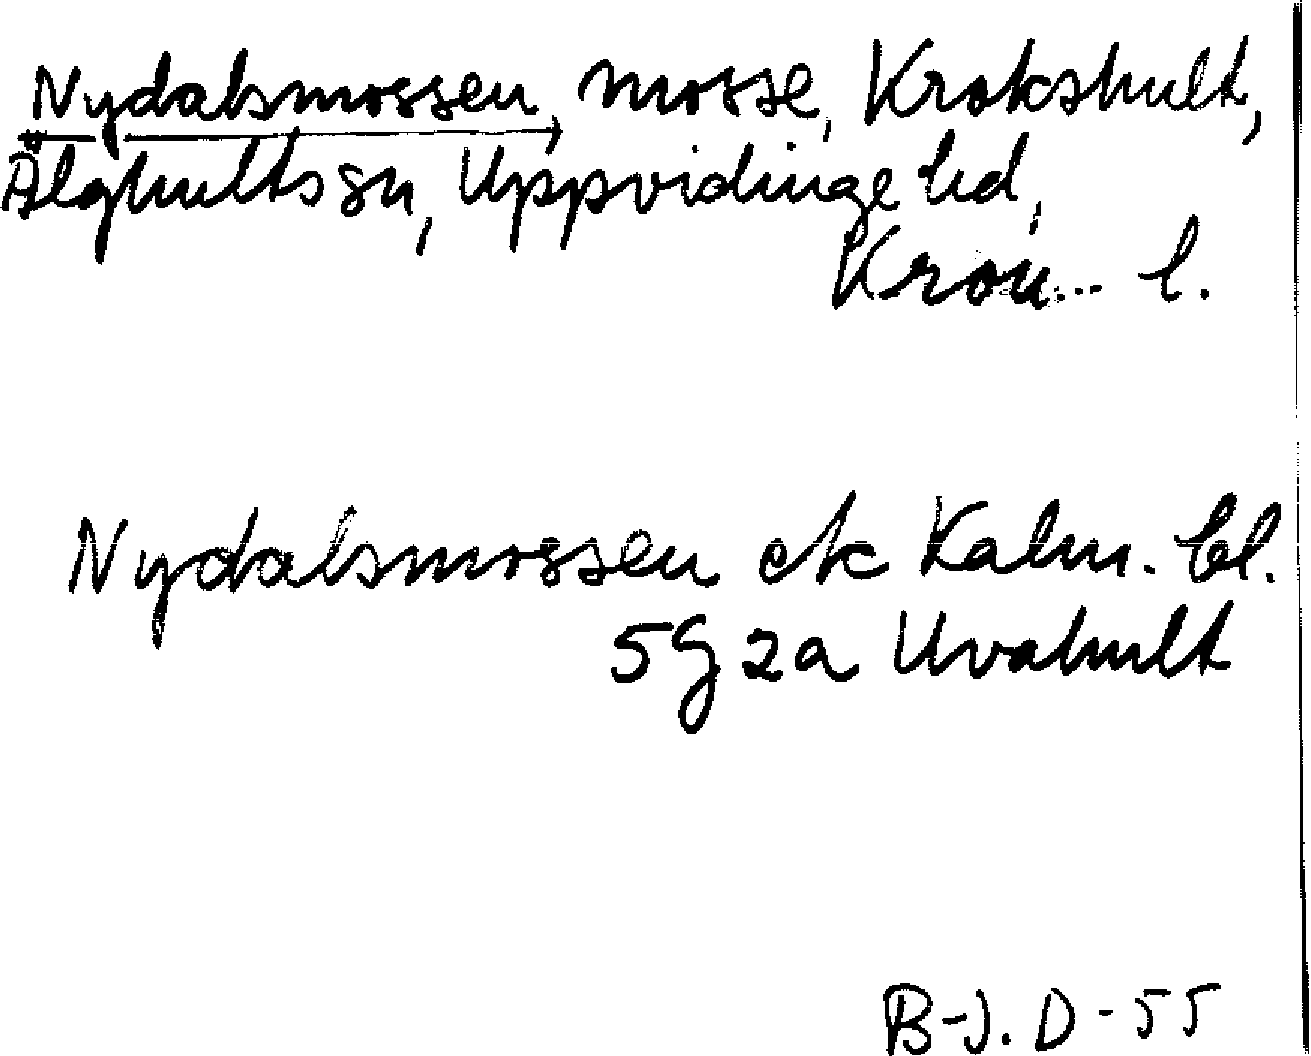 Nydalsmossen, mosse, Krokshult,
Älghults sn, Uppvidinge hd,
Kron... l.
Nydalsmossen ek Kalm. bl.
5G 2a Uvahult
B-J. D-55